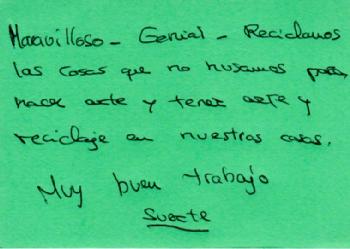 Maravilloso - Genial - Reciclamos
las cosas que no husamos para
hacer arte y tener arte y
reciclaje en nuestras casas.
Muy buen trabajo
Suerte